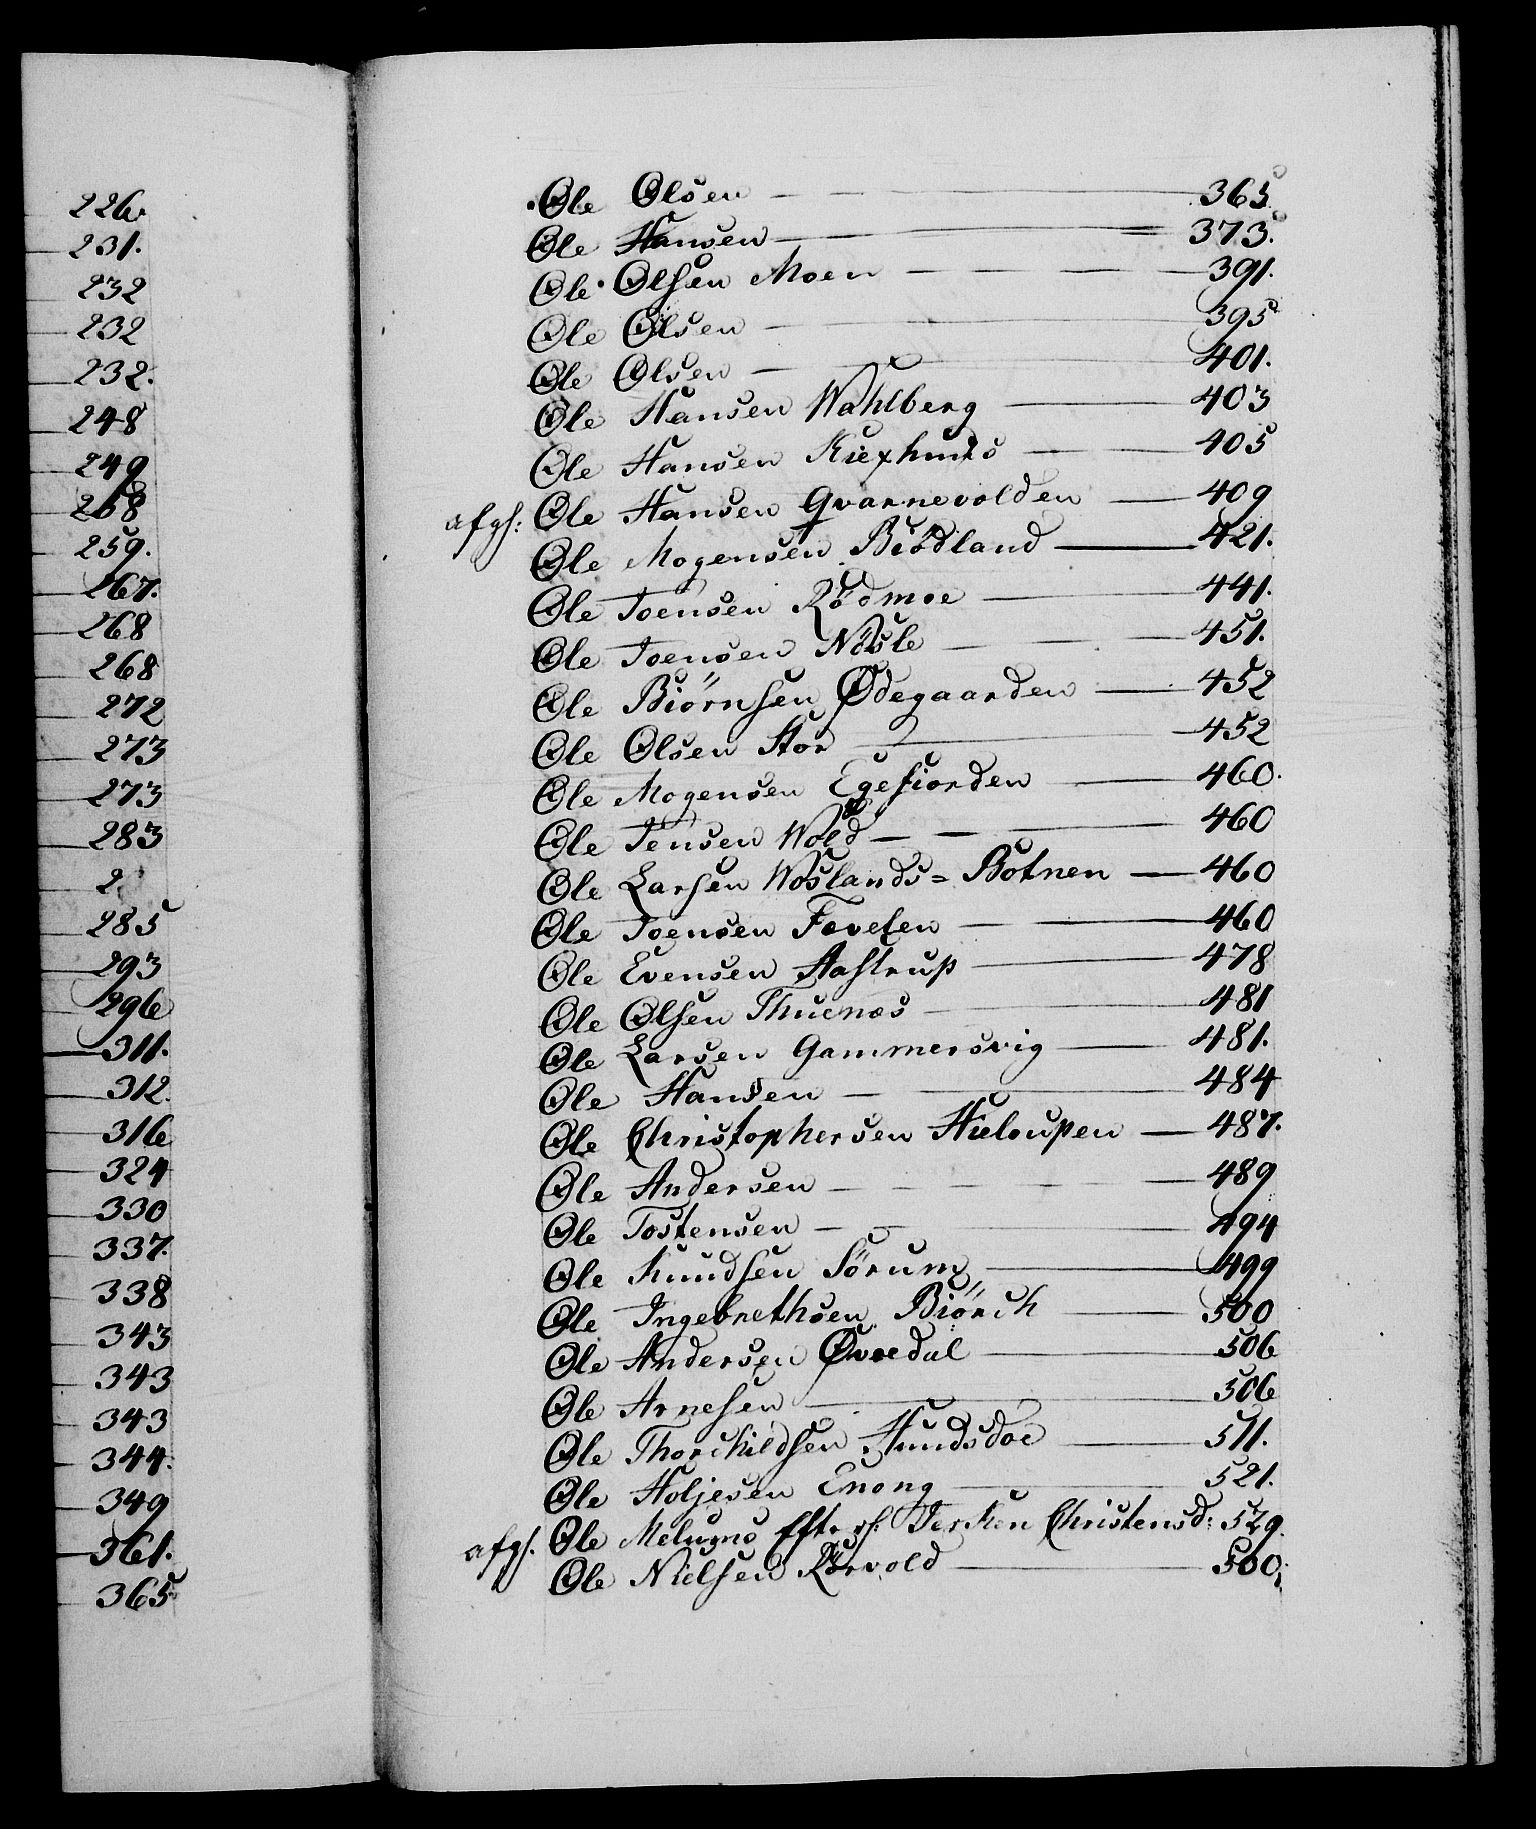 226.
231.
232
232
232.
248
249
258
259.
267.
268
268
272
273
273
283
2
285
293
296
311.
312.
316
324
330
337.
338
343
343
343
344.
349
361.
365
Ole Olsen — 365.
Ole Hansen — 373.
Ole Olsen Moen — 391.
Ole Olsen — 395
Ole Olsen — 401.
Ole Hansen Wahlberg — 403
Ole Hansen — 405
afgh: Ole Hansen Qvarnevolden — 409
Ole Mogensen Biödland — 421.
Ole Joensen Rödmoe — 441.
Ole Joensen Nösle — 451.
Ole Biörnsen Ødegaarden — 452
Ole Olsen Stor — 452
Ole Mogensen Egefiorden — 460.
Ole Jensen Wold — 460
Ole Larsen Woslands= Botnen — 460
Ole Joensen Fovelen — 460
Ole Evensen Aastrup — 478
Ole Olsen Thuenæs — 481
Ole Larsen Gammersvig — 481.
Ole Hansen — 484
Ole Christophersen Hieloupen — 487.
Ole Andersen — 489
Ole Tostensen — 494
Ole Knudsen Sörum — 499
Ole Ingebrethsen Biörch — 500
Ole Andersen Øvredal — 506
Ole Arnesen — 506
Ole Thorchildsen Hundsdoe — 511.
Ole Holjesen Enong — 521.
Ole Melums Eftr. sl: Christensd: 529.
afgh. Ole Nielsen Rörvold — 500.